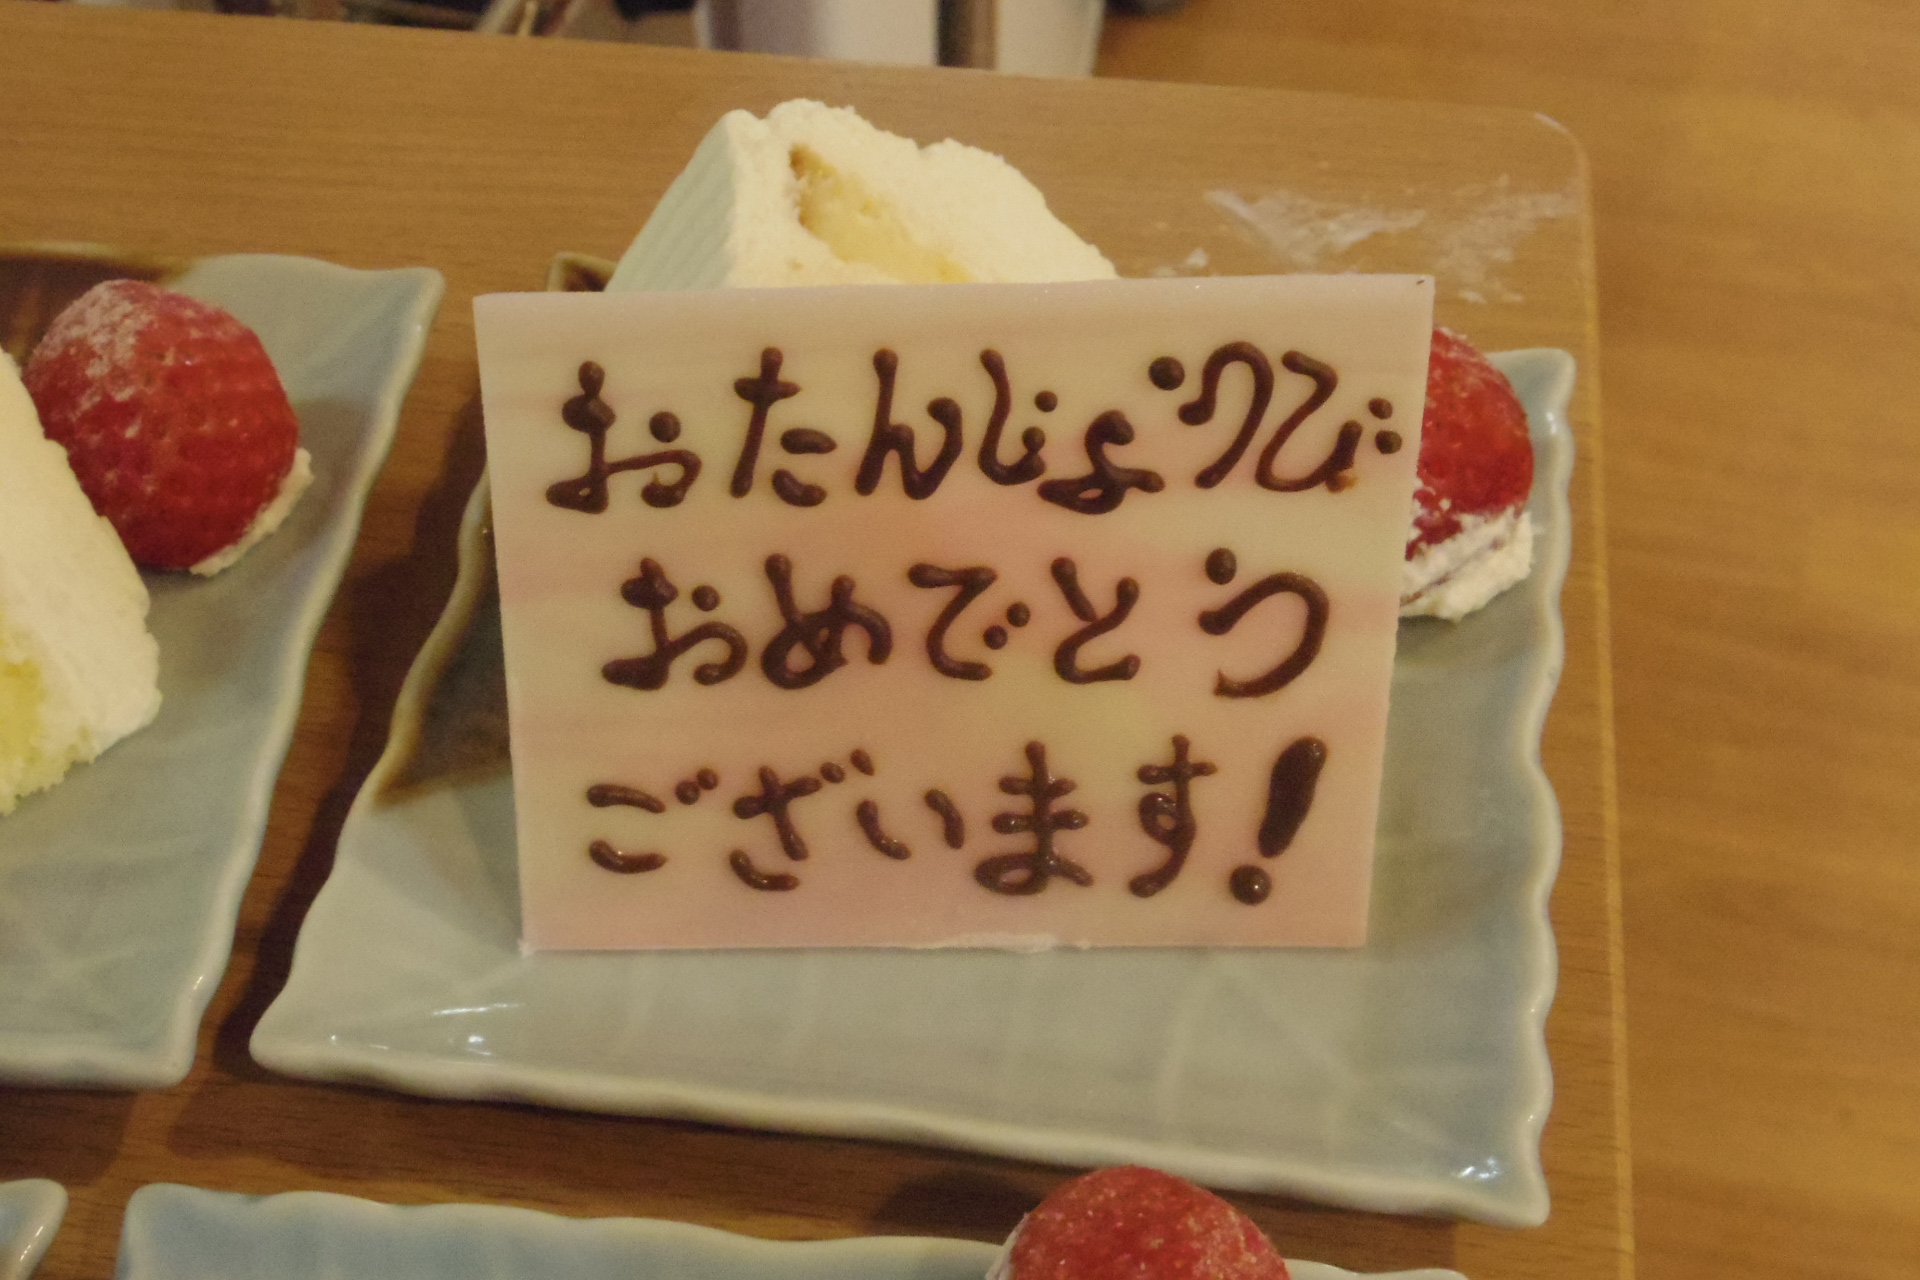 おたんじょうび
おめでとう
ございます!